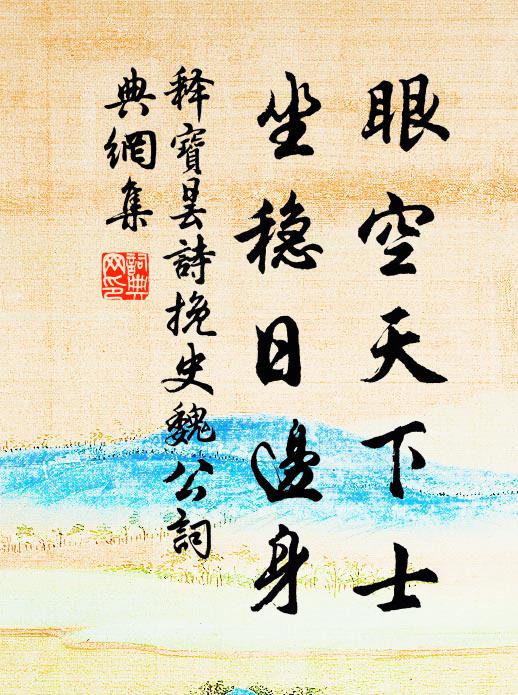 眼空天下士
坐稳日邊身
释寶曇詩挽史魏公詞
典網集
詞典
网印